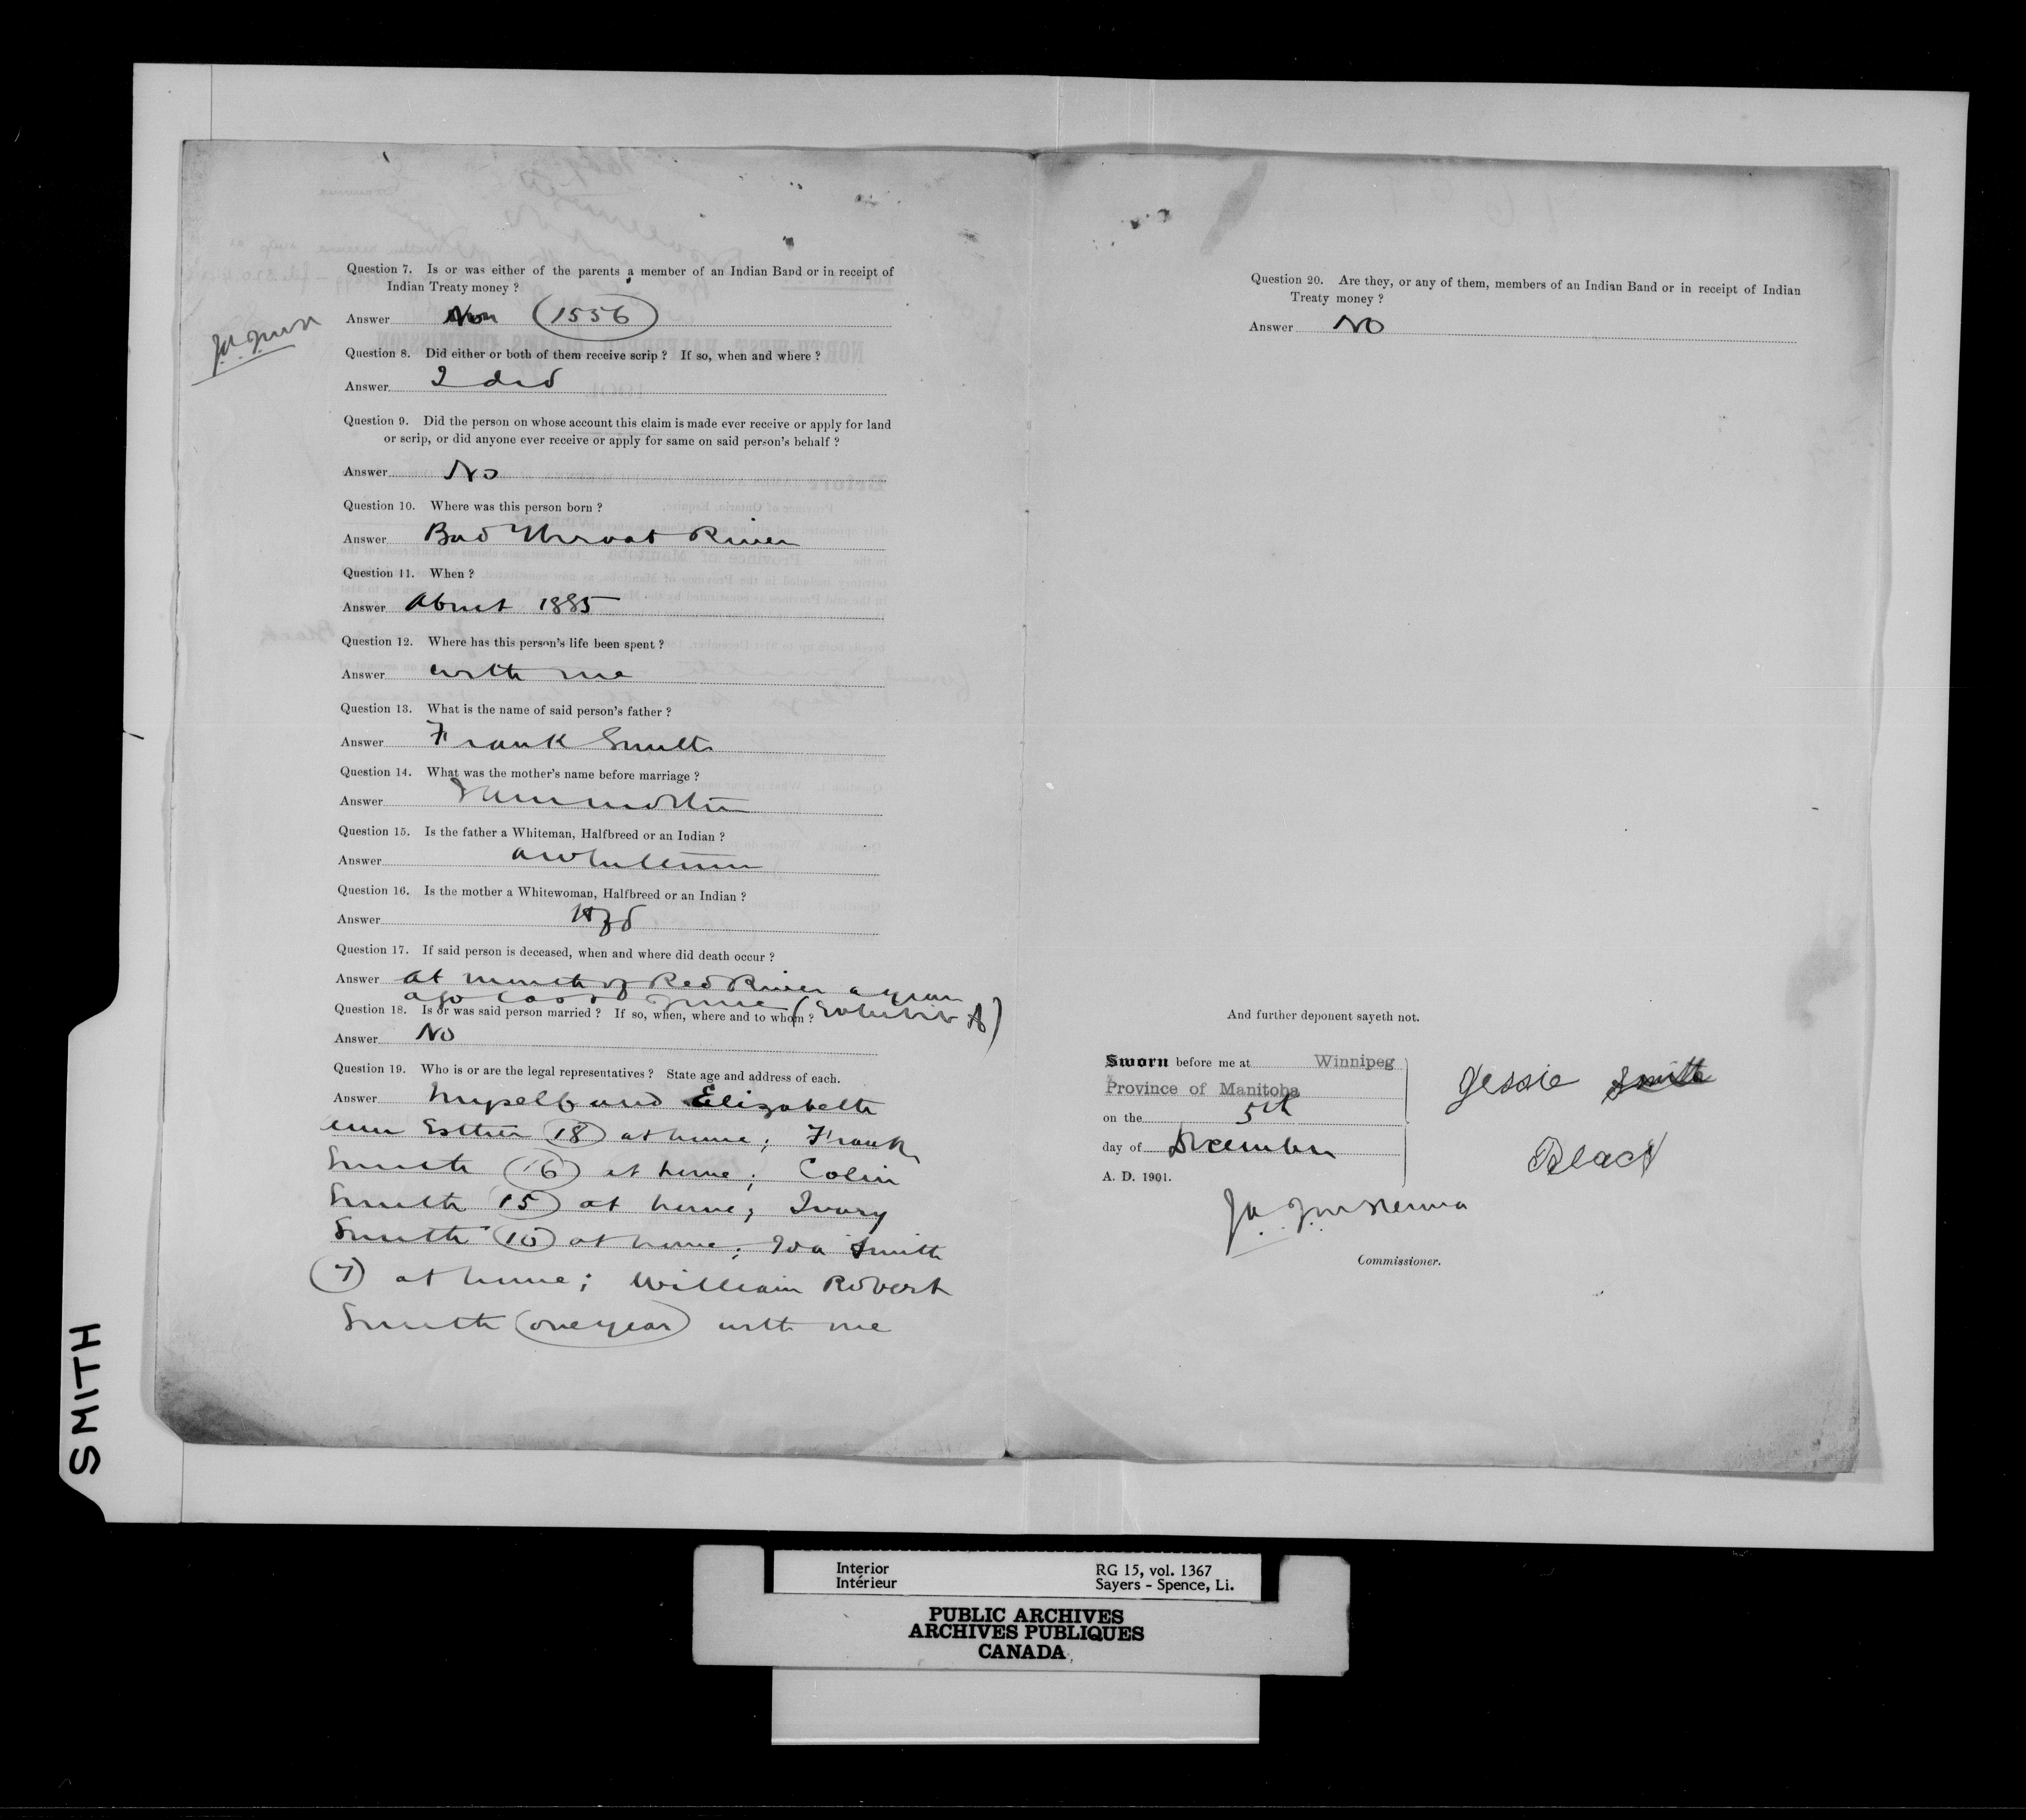 Question 7. Is or was either of the parents a member of an Indian Band or in receipt of
Indian Treaty money ?
Answer (1556)
Question 8. Did either or both of them receive scrip ? If so, when and where ?
Answer I did
Question 9. Did the person on whose account this claim is made ever receive or apply for land
or scrip, or did anyone ever receive or apply for same on said person's behalf ?
Answer No
Question 10. Where was this person born ?
Answer Bad Throat River
Question 11. When ?
Answer About 1885
Question 12. Where has this person's life been spent ?
Answer with me
Question 13. What is the name of said person's father ?
Answer Frank Smith
Question 14. What was the mother's name before marriage ?
Answer I am mother
Question 15. Is the father a Whiteman, Halfbreed or an Indian ?
Answer a Whiteman
Question 16. Is the mother a Whitewoman, Halfbreed or an Indian ?
Answer Hfd
Question 17. If said person is deceased, when and where did death occur ?
Answer at mouth of Red River a year
ago last June (Exhibit A)
Question 18. Is or was said person married ? If so, when, where and to whom ?
Answer No
Question 19. Who is or are the legal representatives ? State age and address of each.
Answer Myself and Elizabeth
Esther (18) at home; Frank
Smith (16) at home; Colin
Smith (15) at home; Ivory
Smith (10) at home; Ida Smith
(7) at home; William Robert
Smith (one year) with me
Question 20. Are they, or any of them, members of an Indian Band or in receipt of Indian
Treaty money ?
Answer No
And further deponent sayeth not.
Sworn before me at Winnipeg
Province of Manitoba
on the 5th
day of December
A. D. 1901.
Jessie Smith
Black
Commissioner.
SMITH
Interior
Intérieur
RG 15, vol. 1367
Sayers - Spence, Li.
PUBLIC ARCHIVES
ARCHIVES PUBLIQUES
CANADA